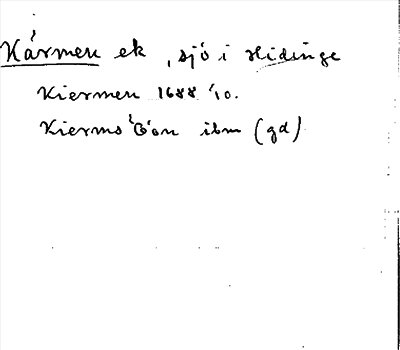 Kärmen ek, sjö i Hidinge
Kiermen 1688 '10.
Kierms ön ibm (gd)